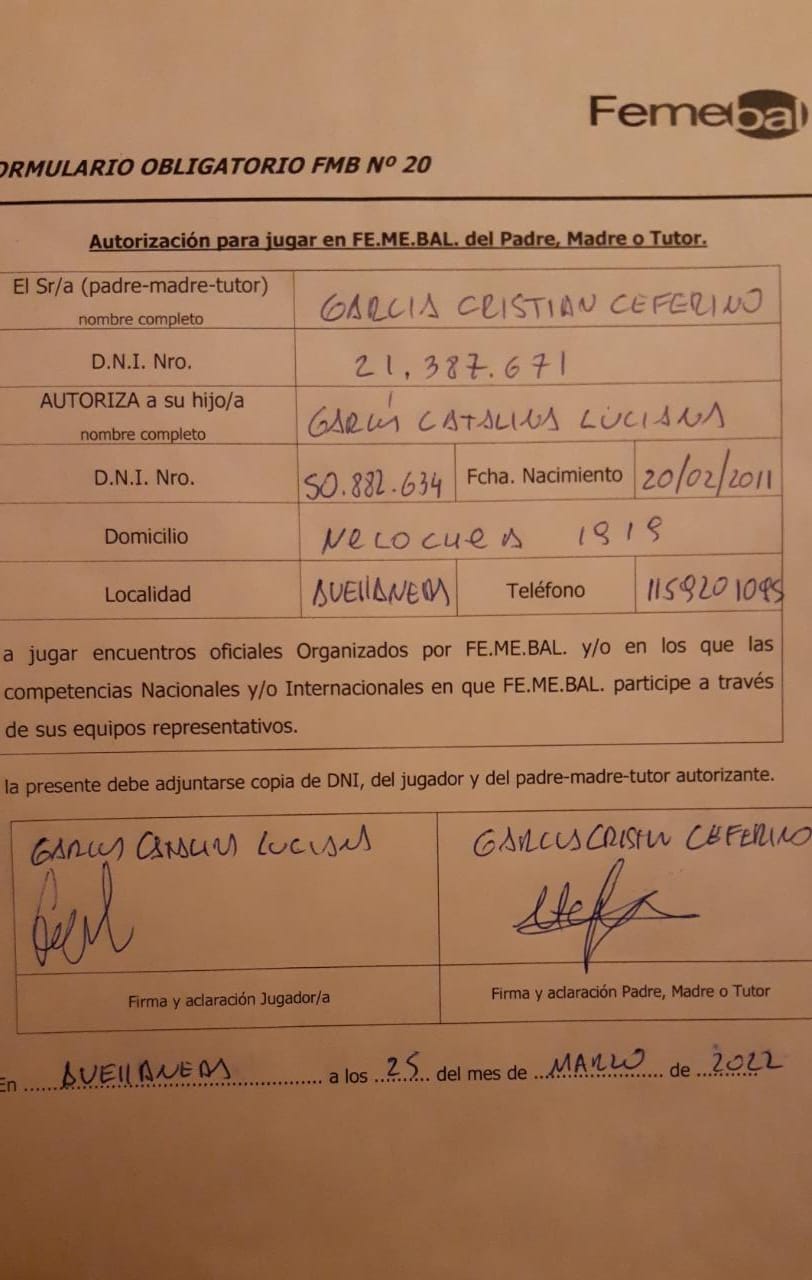 Femebal
ORMULARIO OBLIGATORIO FMB Nº 20
Autorización para jugar en FE.ME.BAL. del Padre, Madre o Tutor.
El Sr/a (padre-madre-tutor)
nombre completo
GARCIA CRISTIAN CEFERINO
D.N.I. Nro.
21.387.671
AUTORIZA a su hijo/a
nombre completo
GARCÍA CATALINA LUCIANA
D.N.I. Nro.
50.882.634
Fcha. Nacimiento
20/02/2011
Domicilio
1919
Localidad
AVELLANEDA
Teléfono
1159201095
a jugar encuentros oficiales Organizados por FE.ME.BAL. y/o en los que las
competencias Nacionales y/o Internacionales en que FE.ME.BAL. participe a través
de sus equipos representativos.
la presente debe adjuntarse copia de DNI, del jugador y del padre-madre-tutor autorizante.
GARCIA CATALINA LUCIANA
GARCIA CRISTIAN CEFERINO
Firma y aclaración Jugador/a
Firma y aclaración Padre, Madre o Tutor
En AVELLANEDA a los 25 del mes de MARZO de 2022